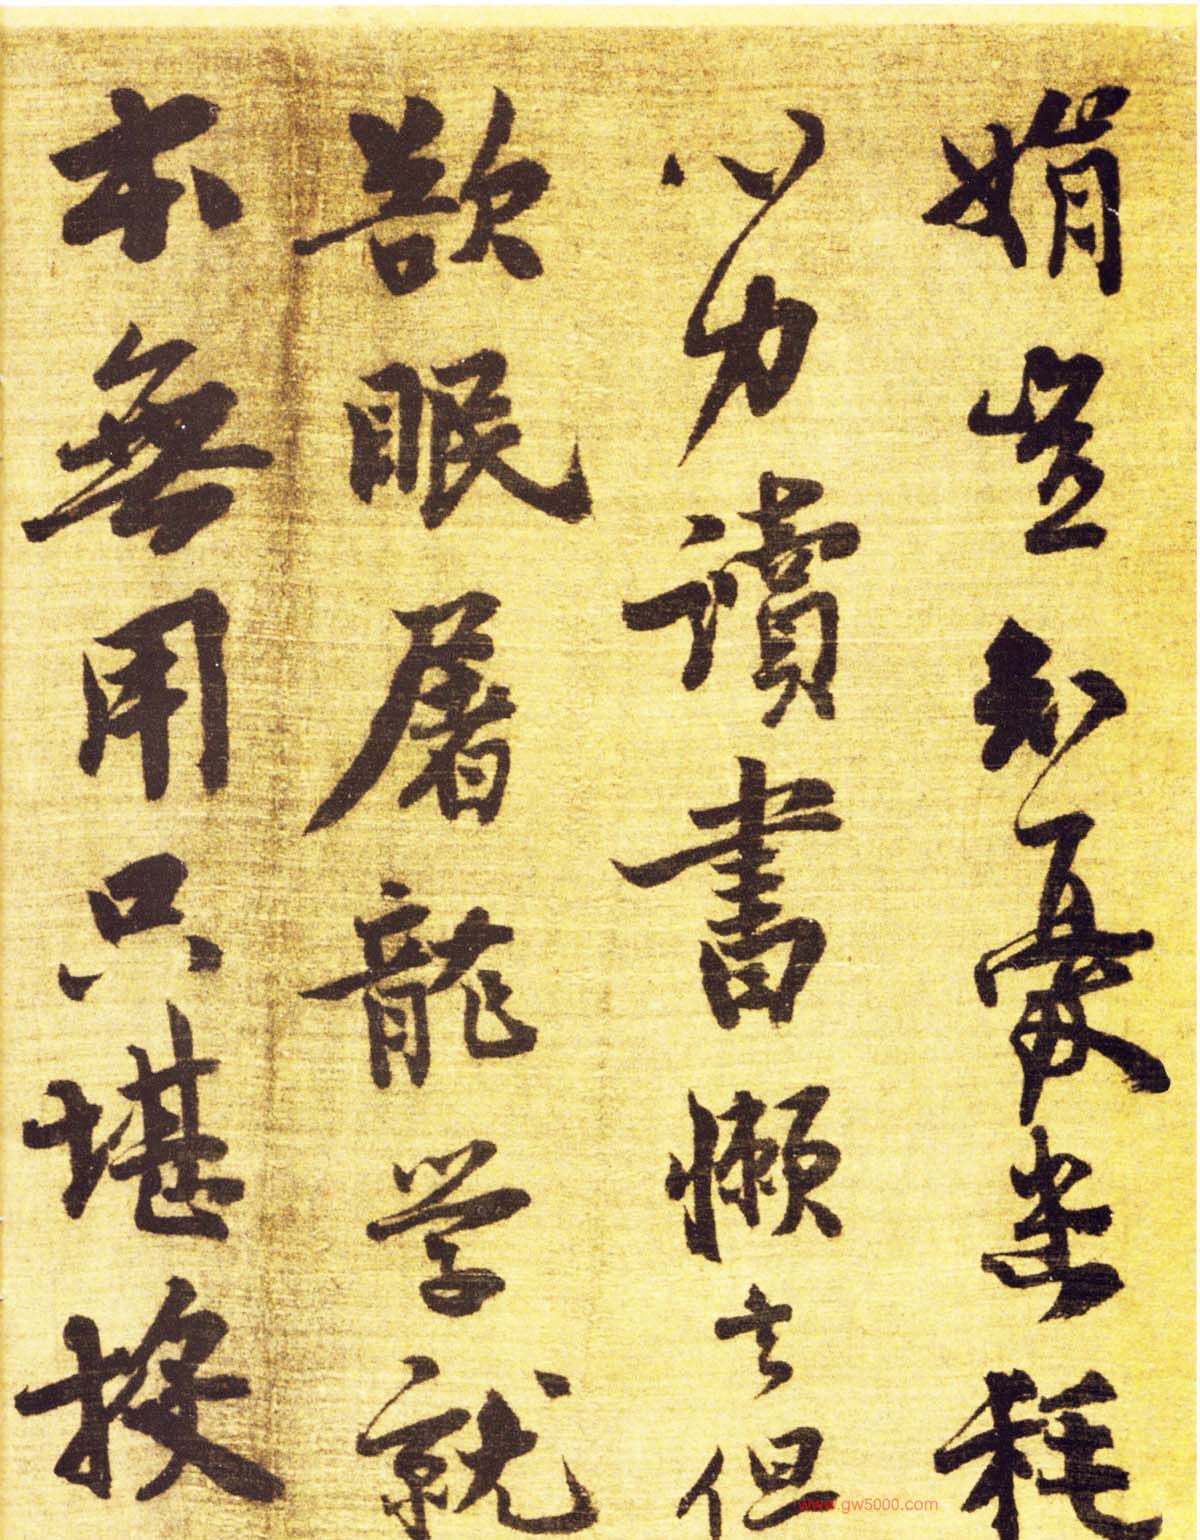 娟豈知憂患耗
心力讀書懶去但
欲眠屠龍学就
本無用只堪投
www.gw5000.com